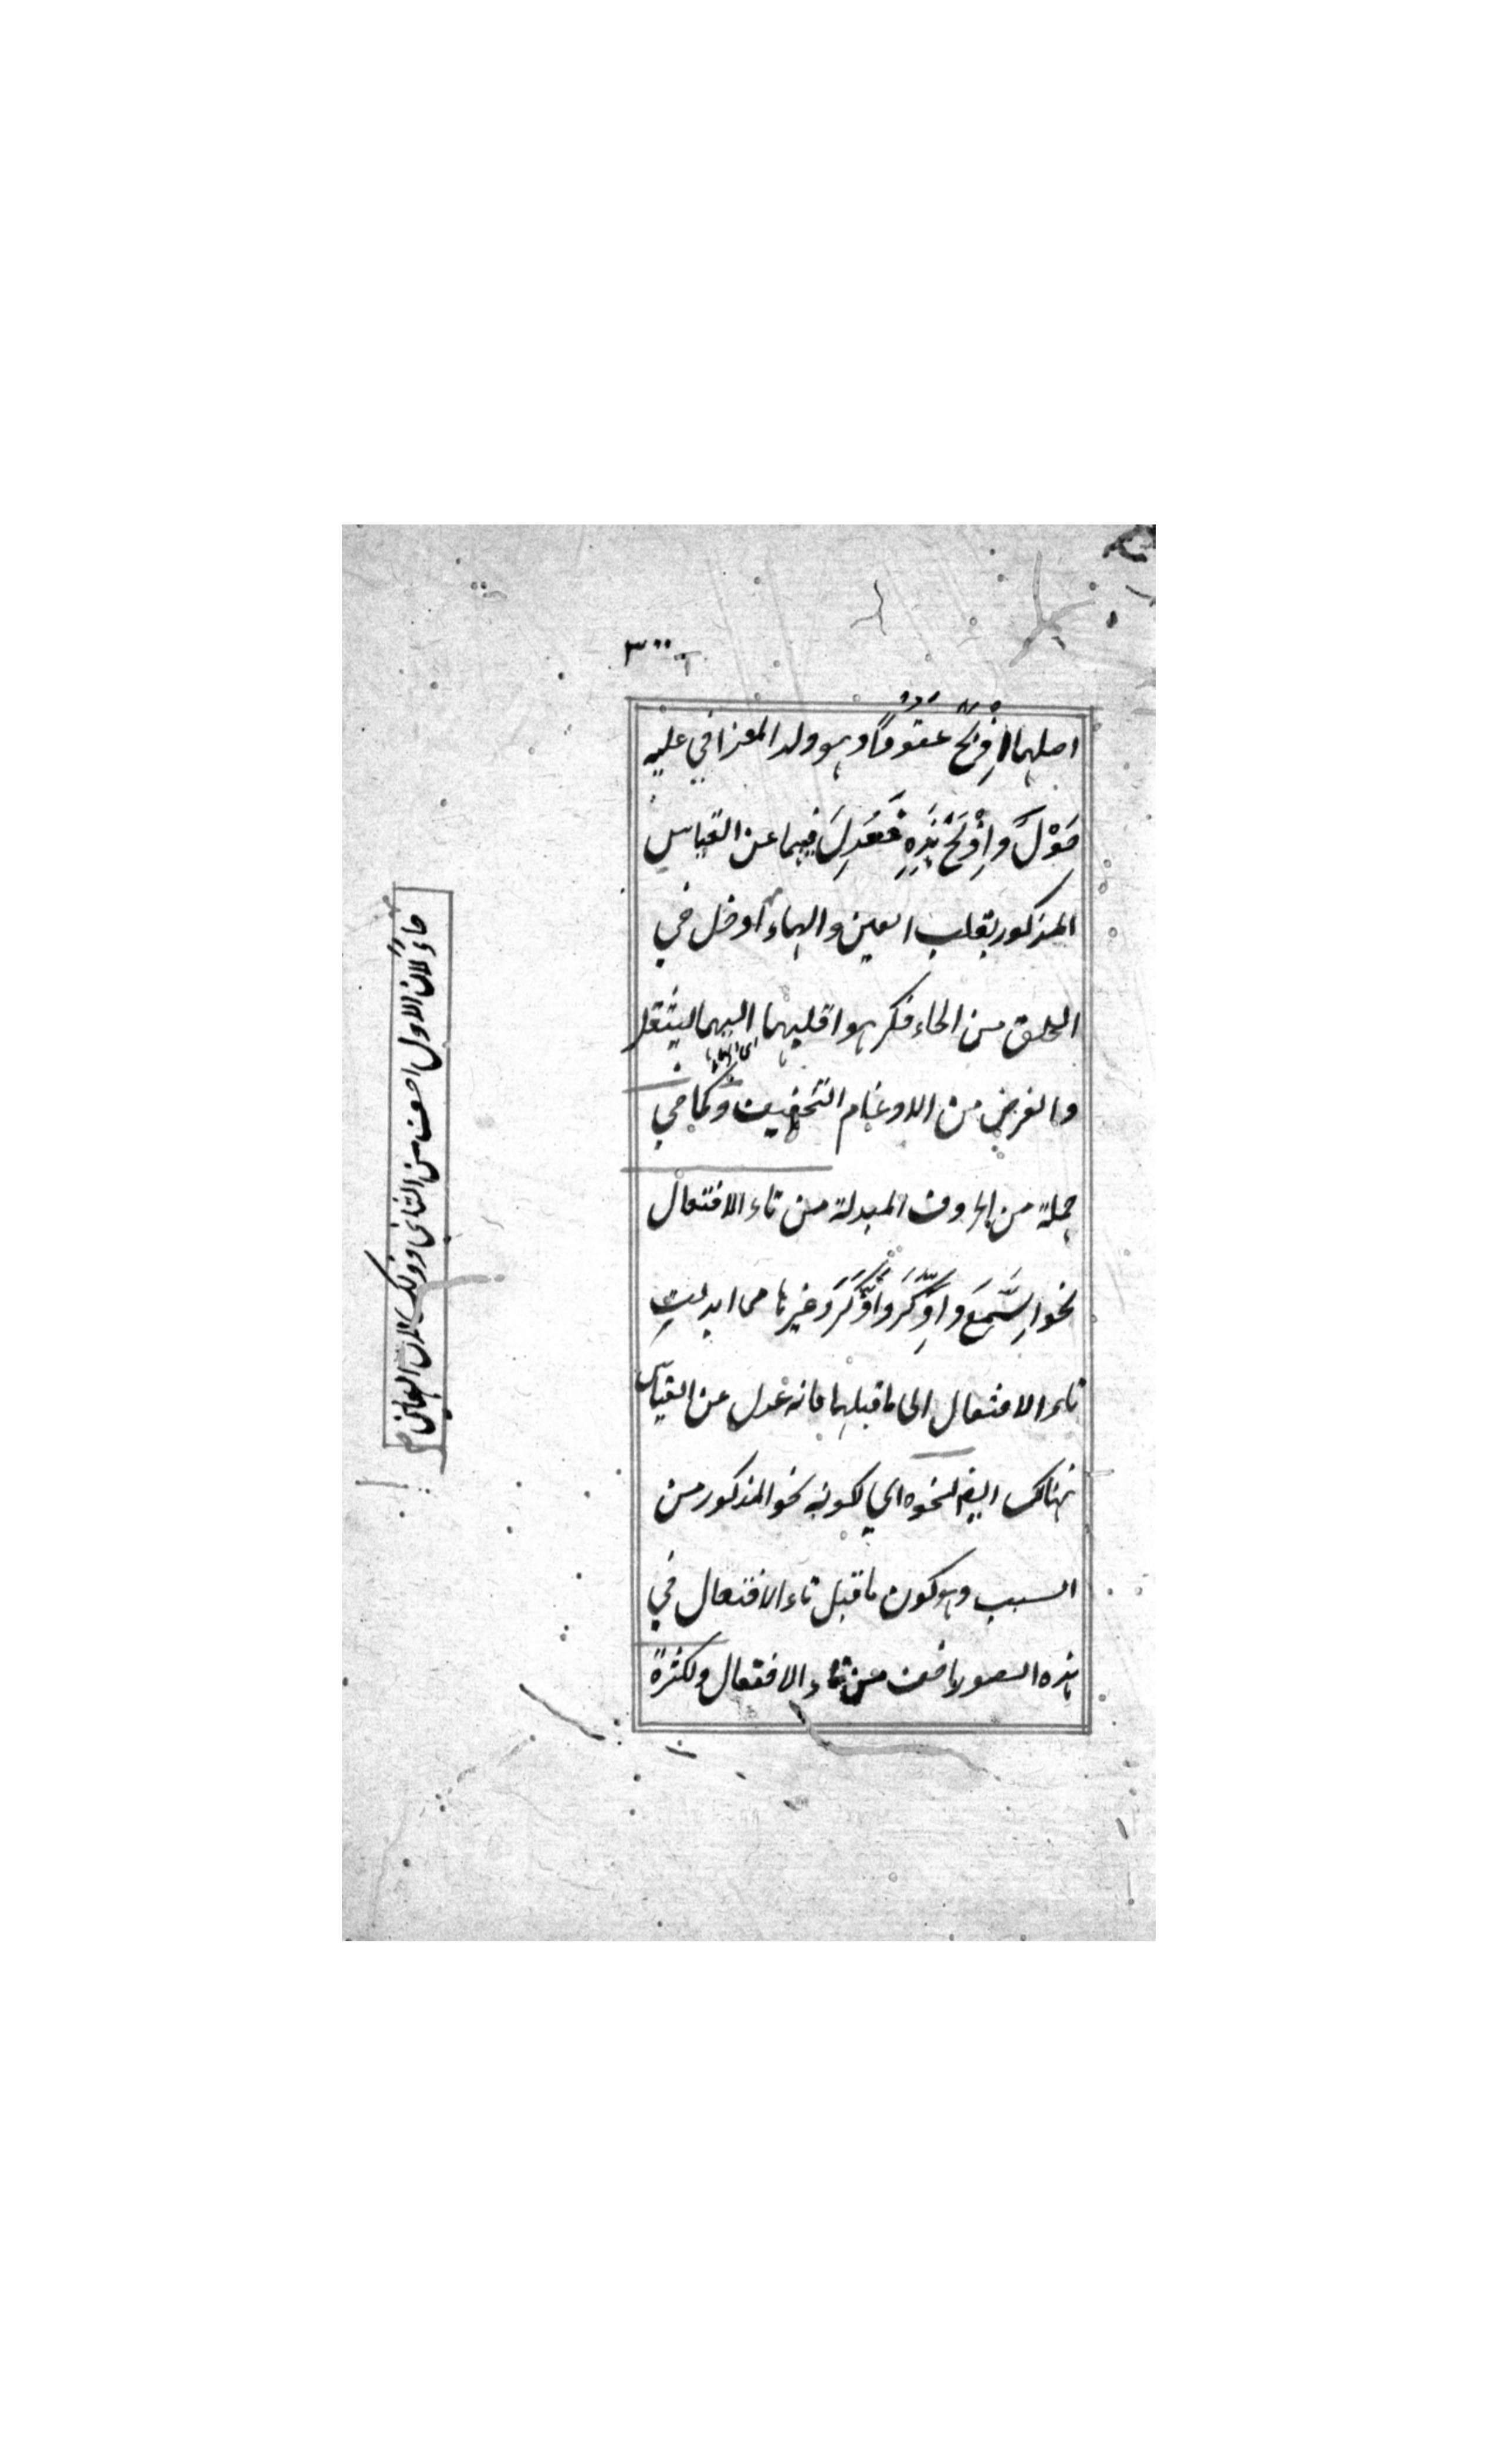 ٣٠٠
اصلهما اِذْبَحْ عتودًا وهو ولد المعز افي عليه
حَوْلٌ واِذْبَحْ هٰذِهِ فَعُدِلَ فيهما عن القياس
المذكور بقلب العين والهاء اوخل في
الحلق من الحاء فكرهوا قلبهما اليهما ليثقل
والغرض من الادغام التخفيف وكما في
جملة من الحروف المبدلة من تاء الافتعال
نحو اِسَّمَعَ واِذَّكَرَ واُذَّكَرَ وغيرها مما ابدلت
تاء الافتعال الى ما قبلها فانه عدل عن القياس
هنالك ايضا لنحوه اي لكونه نحو المذكور من
السبب وهو كون ما قبل تاء الافتعال في
هذه الصور اخف من تاء الافتعال ولكثرة
لان الاول اخف من الثاني وذلك لان